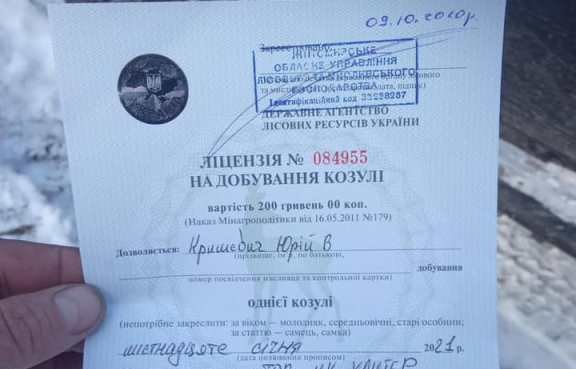 09.10.2020р.
ЖИТОМИРСЬКЕ
ОБЛАСНЕ УПРАВЛІННЯ
ЛІСОВОГО ТА МИСЛИВСЬКОГО
ГОСПОДАРСТВА
Ідентифікаційний код
ДЕРЖАВНЕ АГЕНТСТВО
ЛІСОВИХ РЕСУРСІВ УКРАЇНИ
ЛІЦЕНЗІЯ № 084955
НА ДОБУВАННЯ КОЗУЛІ
вартість 200 гривень 00 коп.
(Наказ Мінагрополітики від 16.05.2011 №179)
Дозволяється: Юрій В
(прізвище, ім'я, по батькові,
добування
номер посвідчення мисливця та контрольної картки)
однієї козулі
(непотрібне закреслити: за віком — молодняк, середньовічні, старі особини;
за статтю — самець, самка)
шістнадцяте січня 2021р.
(дата полювання прописом)